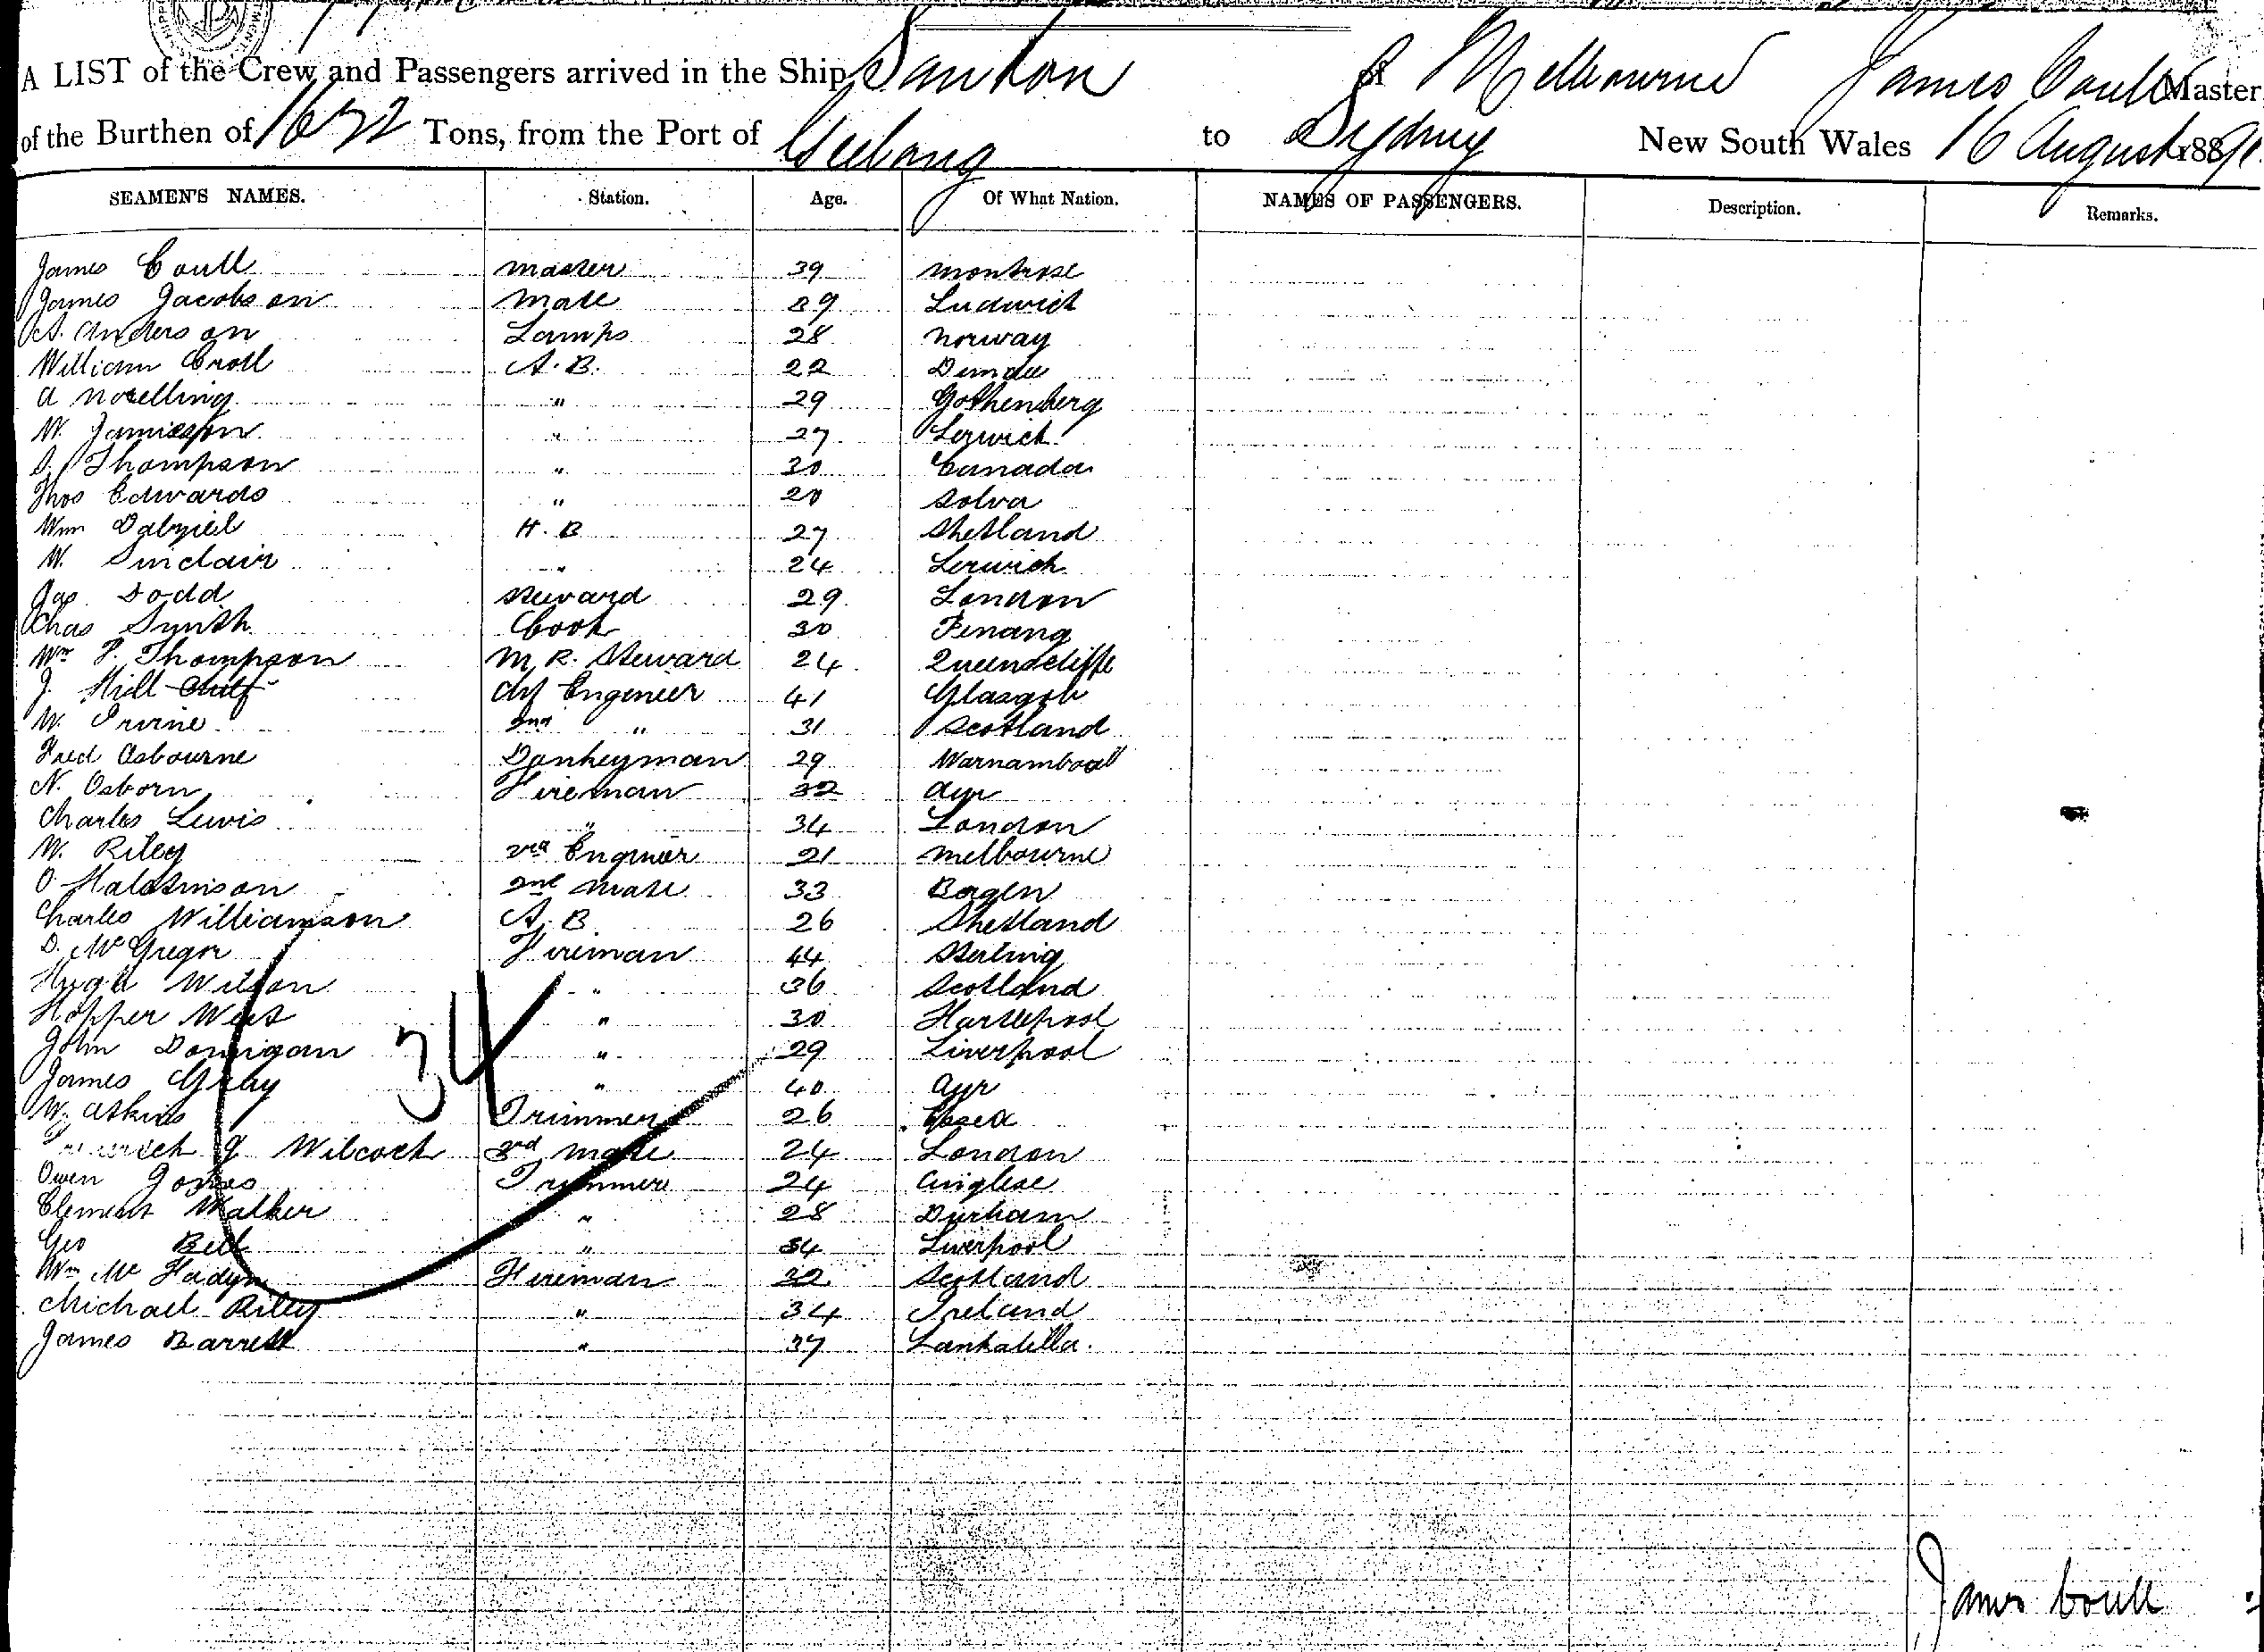 A LIST of the Crew and Passengers arrived in the Ship of Melbourne James Coull Master
of the Burthen of 1672 Tons, from the Port of Geelong to Sydney New South Wales 16 August 1889
SEAMEN'S NAMES. Station. Age. Of What Nation. NAMES OF PASSENGERS. Description. Remarks.
James Coull master 39 montrose
James Jacobson mate 39 Ludwick
A. Anderson Lamps 28 norway
William Croll A. B. 22 Dundee
A " 29 Gothenberg
W. Jamieson " 27 Lerwick
D. Thompson " 30 Canada
Thos Edwards " 20 Solva
Wm Dalziel A. B 27 Shetland
W. Sinclair " 24 Lerwick
Jas Dodd steward 29 London
Chas Smith Cook 30 Penang
Wm P. Thompson M. R. Steward 24 Queenscliffe
J. Hill Chief Chf Engenier 41 Glasgow
W. Irvine 2nd " 31 Scotland
Fred Osbourne Donkeyman 29 Warnambool
N. Osborn Fireman 32 Ayr
Charles Lewis " 34 London
W. Riley 3rd Enginier 21 Melbourne
O 2nd Mate 33 Bergen
Charles Williamson A. B. 26 Shetland
D. McGregor Fireman 44 Sterling
Hugh Wilson " 36 Scotland
Hopper West " 30 Hartlepool
John Donnigan " 29 Liverpool
James Gray " 40 Ayr
W. Atkins Trimmer 26 Essex
J Wilcock 3rd mate 24 London
Owen Jones Trimmer 24 Anglese
Clement Walker " 28 Durham
Geo Bell " 34 Liverpool
Wm Mc Fadyn Fireman 32 Scotland
Michael Riley " 34 Ireland
James Barrett " 37
34
James Coull